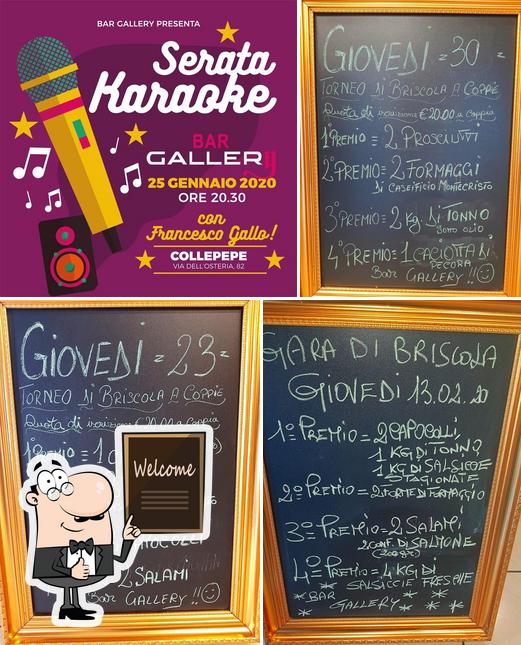 BAR GALLERY PRESENTA
Serata
Karaoke
BAR
GALLERY
25 GENNAIO 2020
ORE 20.30
con
Francesco Gallo!
COLLEPEPE
VIA DELL'OSTERIA, 82
GIOVEDI = 30 =
TORNEO DI BRISCOLA A COPPIE
Quota di iscrizione €20.00 a coppia
1° PREMIO = 2 PROSCIUTTI
2° PREMIO = 2 FORMAGGI
DI CASEIFICIO MONTECRISTO
3° PREMIO = 2 Kg DI TONNO
SOTT OLIO
4° PREMIO = 1 CACIOTTA DI
PECORA
BAR GALLERY !!
GIOVEDI = 23 =
TORNEO DI BRISCOLA A COPPIE
Quota di iscrizione € 20.00 a coppia
1° PREMIO = 1
Welcome
2 SALAMI
BAR GALLERY !!
GARA DI BRISCOLA
GIOVEDI 13.02.20
1° PREMIO = 2 CAPOCOLLI,
1 KG DI TONNO
1 KG DI SALSICCE
STAGIONATE
2° PREMIO = 2 FORME DI FORMAGGIO
3° PREMIO = 2 SALAMI
2 CONF. DI SALMONE
(200gr)
4° PREMIO = 4 KG DI
SALSICCIE FRESCHE
* BAR
GALLERY * * *